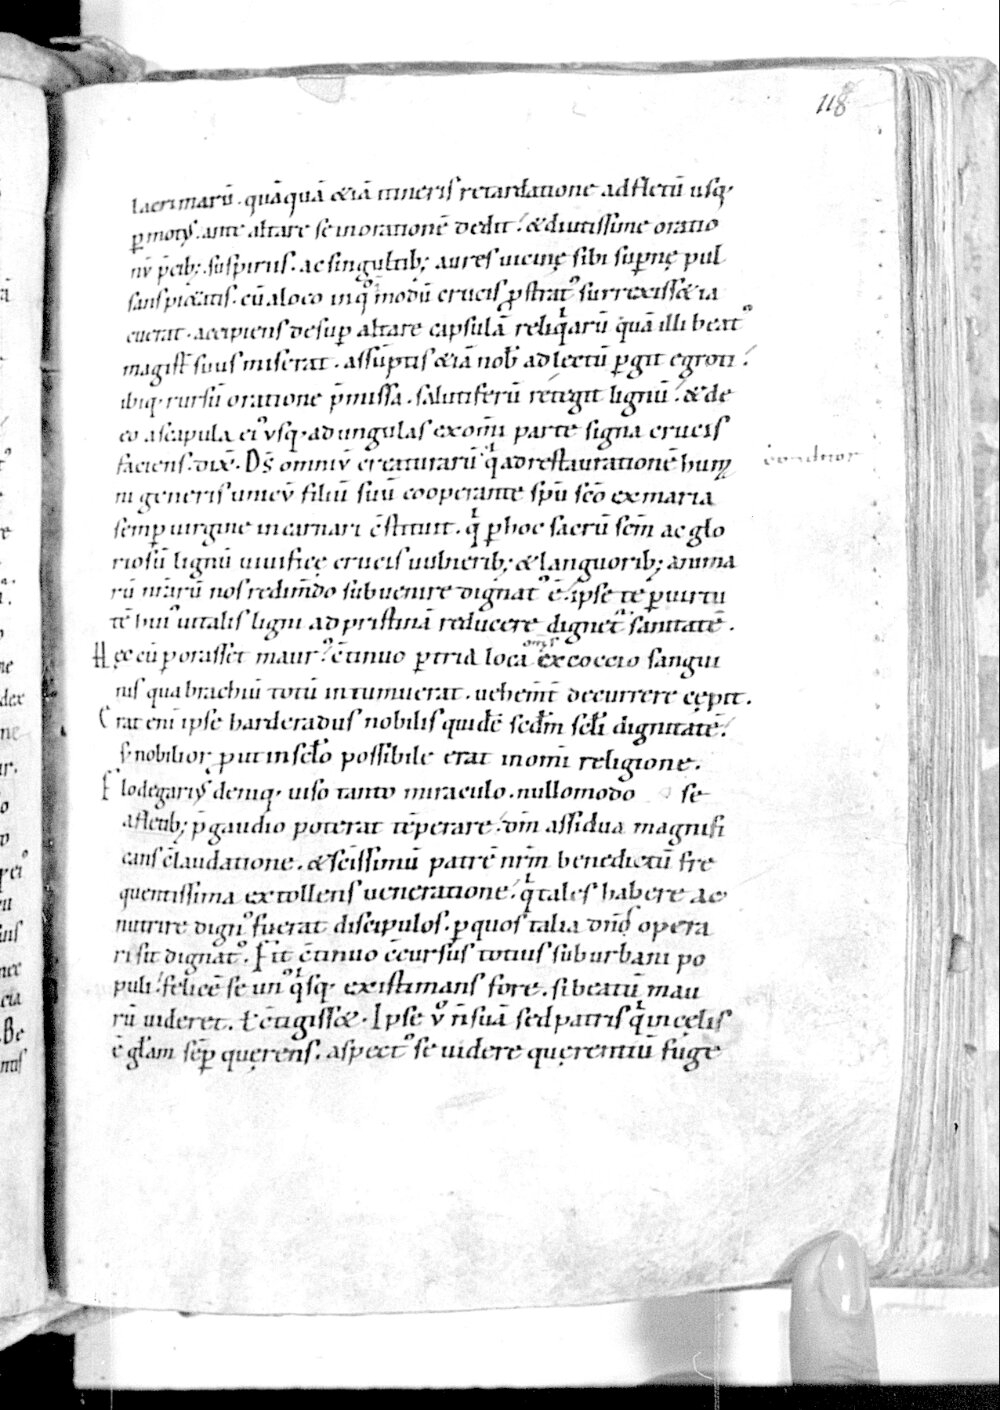 118
lacrimarū. quāquā &iā itineris retardatione ad fletū usq;
ꝑmotus. ante altare se in orationē dedit. & diutissime oratio
nū p̄cib; suspiriis. ac singultib; aures uicinę sibi supernę pul
sans pi&atis. cū a loco in quē modū crucis ꝓstratus surrexiss& ia
cuerat. accipiens desuꝑ altare capsulā reliqarū quā illi beatꝰ
magist̄ suus miserat. assūptis &iā nob ad lectū ꝑgit egroti.
ibiq; rursū oratione p̄missa. salutiferū retegit lignū. & de
eo a scapula eiꝰ usq; ad ungulas ex omī parte signa crucis
faciens. dix̄. D̄s omniū creaturarū q̇ ad restaurationē humą conditor
ni generis unicū filiū suū cooperante sp̄u sc̄o ex maria
semꝑ uirgine incarnari c̄stituit. q̇ ꝑ hoc sacrū sc̄m ac glo
riosū lignū uiuificę crucis uulnerib; & languorib; anima
rū nr̄arū nos redimēdo subuenire dignatꝰ ē. ipse te ꝑ uirtu
tē huiꝰ uitalis ligni ad pristinā reducere dignetꝰ sanitatē.
Hęc cū ꝑorasset maurꝰ. c̄tinuo ꝑ tria loca omīs ex coccio sangui
nis qua brachiū totū intumuerat. uehem̄t decurrere cępit.
Erat enī ipse harderadus nobilis quidē sedm̄ sc̄li dignitatē.
s; nobilior put in sc̄lo possibile erat in omī religione.
Flodegariꝰ deniq; uiso tanto miraculo. nullomodo se
a fletib; p̄ gaudio poterat tēperare. dm̄ assidua magnifi
cans c̄laudatione. & sc̄issimū patrē nrm̄ benedictū fre
quentissima extollens ueneratione. q̇ tales habere ac
nutrire dignꝰ fuerat discipulos. ꝑ quos talia dn̄s opera
ri sit dignatꝰ. Fit c̄tinuo c̄cursus totius suburbani po
puli. felicē se unꝰ q̇sq; existimans fore. si beatū mau
rū uideret. ł c̄tigiss&. Ipse ū n̄ suā sed patris q̇ in cęlis
ē glām sēꝑ quęrens. aspectꝰ se uidere quęrentiū fuge